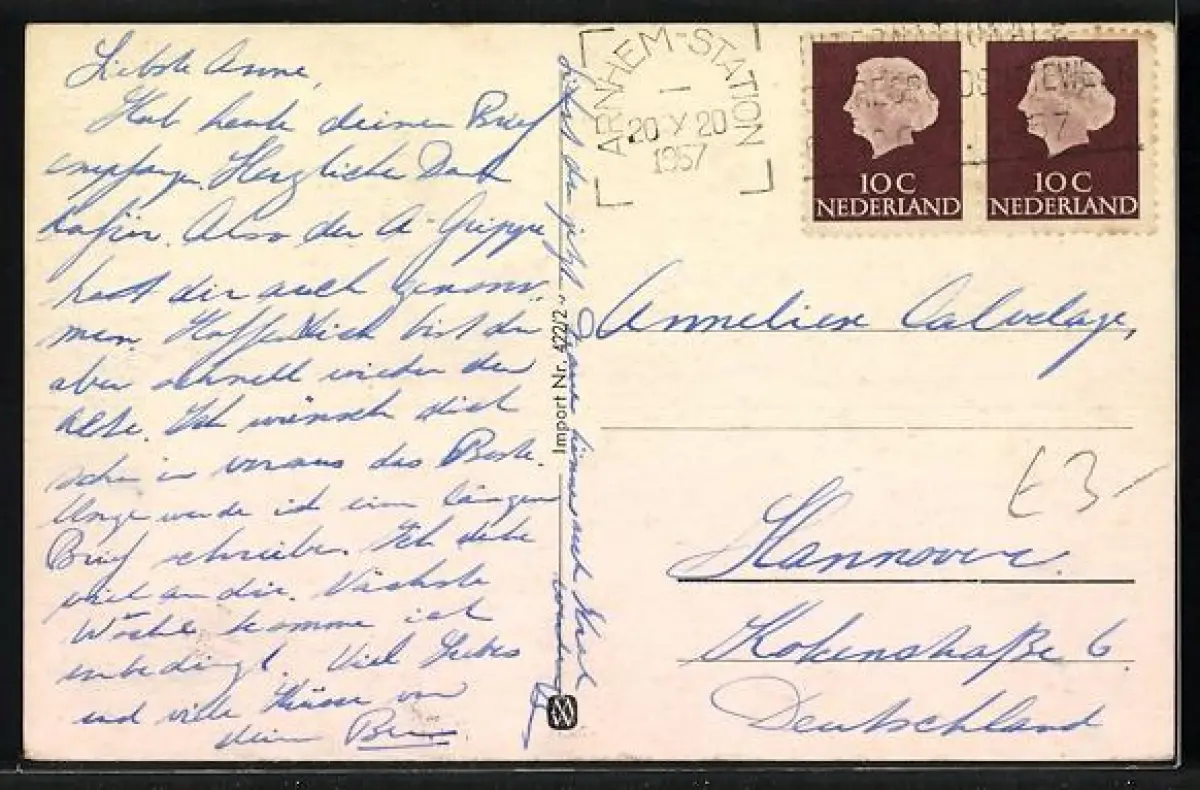 Liebste Anne,
Hab heute deinen Brief
empfangen. Herzlichen Dank
dafür. Also der A-Grippe
hast dir auch genom-
men. Hoffendlich bist du
aber schnell wieder der
Alte. Ich wünsch dich
schon in voraus das Beste.
werde ich ein längen
Brief schreiben. Ich denke
viel an dir. Nächste
Woche komme ich
unbedingt. Viel Liebes
und viele Küsse von
dein
Import Nr. 422/2
ARNHEM-STATION
1
20 X 20
1957
INTERNATIONALE
10 C
NEDERLAND
10 C
NEDERLAND
Anneliese Calvelage,
£3-
Hannover.
Kokenstraße 6.
Deutschland